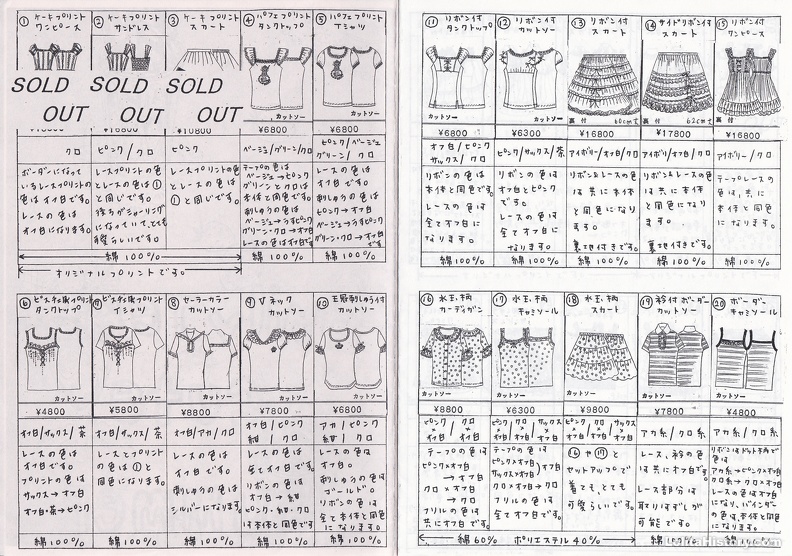 ① ケーキプリント
ワンピース
SOLD
OUT
クロ
ボーダーになって
いるレースプリントの
色はオフ白です。
レースの色は
オフ白になります。
② ケーキプリント
サンドレス
SOLD
OUT
ピンク/クロ
レースプリントの色
とレースの色は①
と同じです。
後ろがシャーリング
になっていてとても
可愛らしいです。
③ ケーキプリント
スカート
SOLD
OUT
¥10800
ピンク
レースプリントの色
とレースの色は
①と同じです。
④ パフェプリント
タンクトップ
カットソー
¥6800
ベージュ/グリーン/クロ
テープの色は
ベージュ→ピンク
グリーンとクロは
本体と同色です。
刺しゅうの色は
ベージュ→うすピンク
グリーン・クロ→オフ白
レースの色はオフ白です
綿100%
⑤ パフェプリント
Tシャツ
カットソー
¥6800
ピンク/ベージュ
グリーン/クロ
レースの色は
オフ白です。
刺しゅうの色は
ピンク→オフ白
ベージュ→うすピンク
グリーン・クロ→オフ白
です
綿100%
綿100%
オリジナルプリントです。
⑥ ビスチェ風プリント
タンクトップ
カットソー
¥4800
オフ白/サックス/茶
レースの色は
オフ白です。
プリントの色は
サックス→オフ白
オフ白・茶→ピンク
綿100%
⑦ ビスチェ風プリント
Tシャツ
カットソー
¥5800
オフ白/サックス/茶
レースとプリント
の色は①と
同色になります。
綿100%
⑧ セーラーカラー
カットソー
カットソー
¥8800
オフ白/アカ/クロ
レースの色は
オフ白です。
刺しゅうの色は
シルバーになります。
綿100%
⑨ Vネック
カットソー
カットソー
¥7800
オフ白/ピンク
紺/クロ
レースの色は
全てオフ白です。
リボンの色は
オフ白→紺
ピンク・紺・クロ
は本体と同色です
綿100%
⑩ 王冠刺しゅう付
カットソー
カットソー
¥6800
アカ/ピンク
紺/クロ
レースの色は
オフ白。
刺しゅうの色は
ゴールド。
リボンの色は
全て本体と同色に
なります。
綿100%
⑪ リボン付
タンクトップ
カットソー
¥6800
オフ白/ピンク
サックス/クロ
リボンの色は
本体と同色です。
レースの色は
全てオフ白に
なります。
綿100%
⑫ リボン付
カットソー
カットソー
¥6300
ピンク/サックス/茶
リボンの色は
オフ白とピンク
です。
レースの色は
全てオフ白に
なります。
綿100%
⑬ リボン付
スカート
裏付 60cm丈
¥16800
アイボリー/オフ白/クロ
リボン&レースの色
は共に本体
と同色になり
ます。
裏地付きです。
綿100%
⑭ サイドリボン付
スカート
裏付 62cm丈
¥17800
アイボリ/オフ白/クロ
リボン&レースの色
は共に本体
と同色になり
ます。
裏地付きです。
綿100%
⑮ リボン付
ワンピース
裏付
¥16800
アイボリー/クロ
テープレースの
色は、共に
本体と同色
になります。
綿100%
⑯ 水玉柄
カーディガン
カットソー
¥8800
ピンク×オフ白/クロ×オフ白
テープの色は
ピンク×オフ白
→オフ白
クロ×オフ白
→クロ
フリルの色は
共にオフ白です。
⑰ 水玉柄
キャミソール
カットソー
¥6300
ピンク×オフ白/クロ×オフ白/サックス×オフ白
テープの色は
ピンク×オフ白
サックス×オフ白
オフ白
クロ×オフ白→クロ
フリルの色は
全てオフ白です。
⑱ 水玉柄
スカート
カットソー
¥9800
ピンク×オフ白/クロ×オフ白/サックス×オフ白
⑯や⑰と
セットアップで
着ても、とても
可愛らしいです。
綿60% ポリエステル40%
⑲ 衿付ボーダー
カットソー
カットソー
¥7800
アカ系/クロ系
レース、衿の色
は共にオフ白です。
レース部分は
取りはずしが
可能です。
綿100%
⑳ ボーダー
キャミソール
カットソー
¥4800
アカ系/クロ系
リボンはドット柄で
色は
アカ系→ピンク×オフ白
クロ系→クロ×オフ白
レースの色はオフ白
になり、バイアス
の色は、本体と同色に
なります。
綿100%
LolitaHistory.com